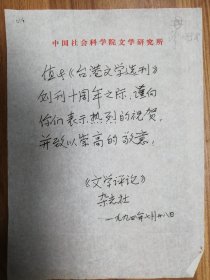 中国社会科学院文学研究所
值兮《台港文学选刊》
创刊十周年之际，谨向
你们表示热烈的祝贺，
并致以崇高的敬意。
《文学评论》
杂志社
一九九四年七月十八日